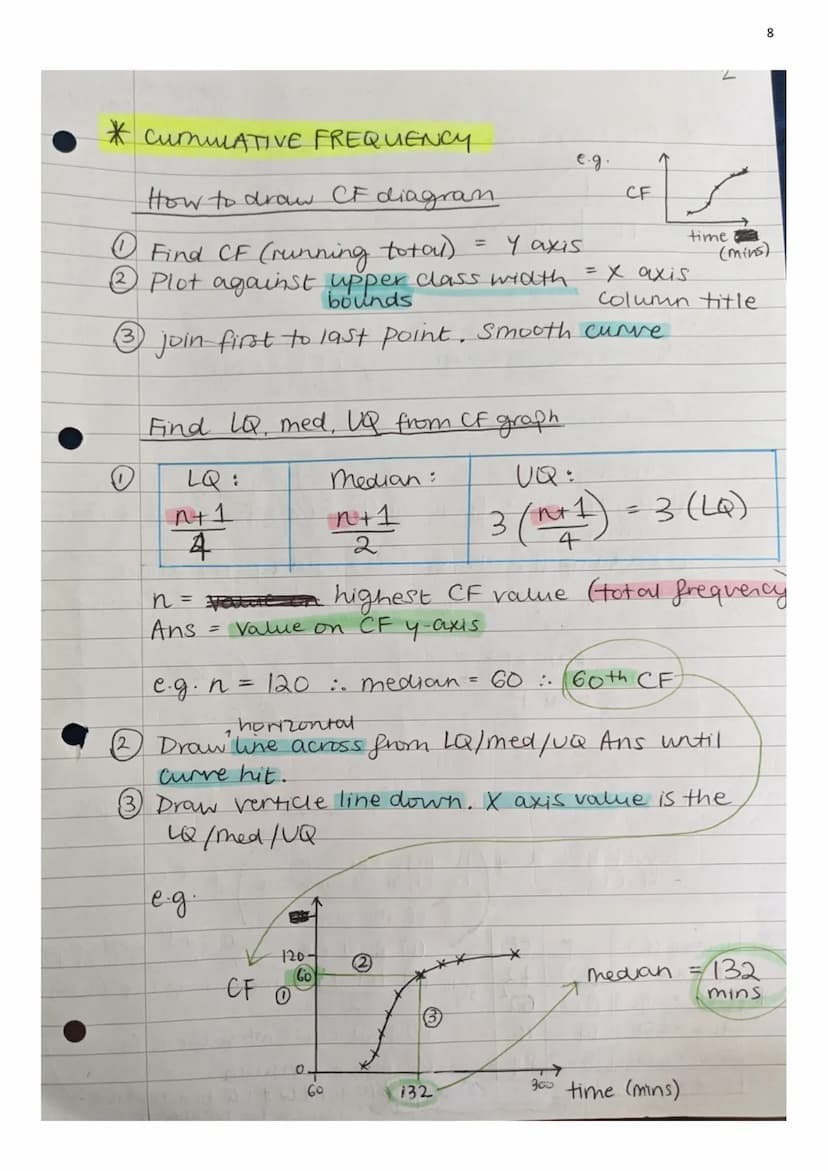 8
* CUMULATIVE FREQUENCY
e.g.
CF
time
(mins)
How to draw CF diagram
① Find CF (running total) = Y axis
② Plot against upper class width = X axis
bounds column title
③ join first to last point. Smooth curve
Find LQ, med, UQ from CF graph
① LQ: Median: UQ:
n+1/4 n+1/2 3(n+1/4) = 3(LQ)
n = highest CF value (total frequency
Ans = Value on CF y-axis
e.g. n = 120 ∴ median = 60 ∴ 60th CF
, horizontal
② Draw line across from LQ/med/UQ Ans until
curve hit.
③ Draw verticle line down. X axis value is the
LQ/med/UQ
e.g.
120
60
CF ①
②
③
0
60
132
300
time (mins)
median = 132
mins